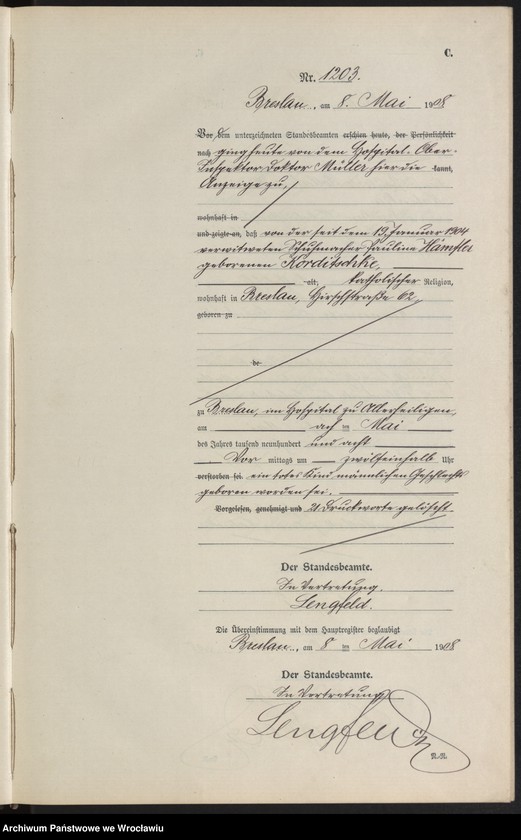 C.
Nr. 1203.
Breslau, am 8. Mai 1908
Vor dem unterzeichneten Standesbeamten erschien heute, der Persönlichkeit
nach ging heute von dem Hospital-Ober-
Inspektor Doktor Müller hier die kannt,
Anzeige zu,
wohnhaft in
und zeigte an, daß von der seit dem 19. Januar 1904
verwitweten Schuhmacher Pauline Hämpler
geborenen Korditschke,
alt, katholischer Religion,
wohnhaft in Breslau, Hirschstraße 62,
geboren zu
de
zu Breslau, im Hospital zu Allerheiligen,
am acht ten Mai
des Jahres tausend neunhundert und acht
Vor mittags um zwölfeinhalb Uhr
verstorben sei. ein totes Kind männlichen Geschlechts
geboren worden sei.
Vorgelesen, genehmigt und 21 Druckworte gelöscht.
Der Standesbeamte.
In Vertretung.
Lengfeld.
Die Übereinstimmung mit dem Hauptregister beglaubigt
Breslau, am 8 ten Mai 1908
Der Standesbeamte.
In Vertretung
Lengfeld
R.-R.
Archiwum Państwowe we Wrocławiu